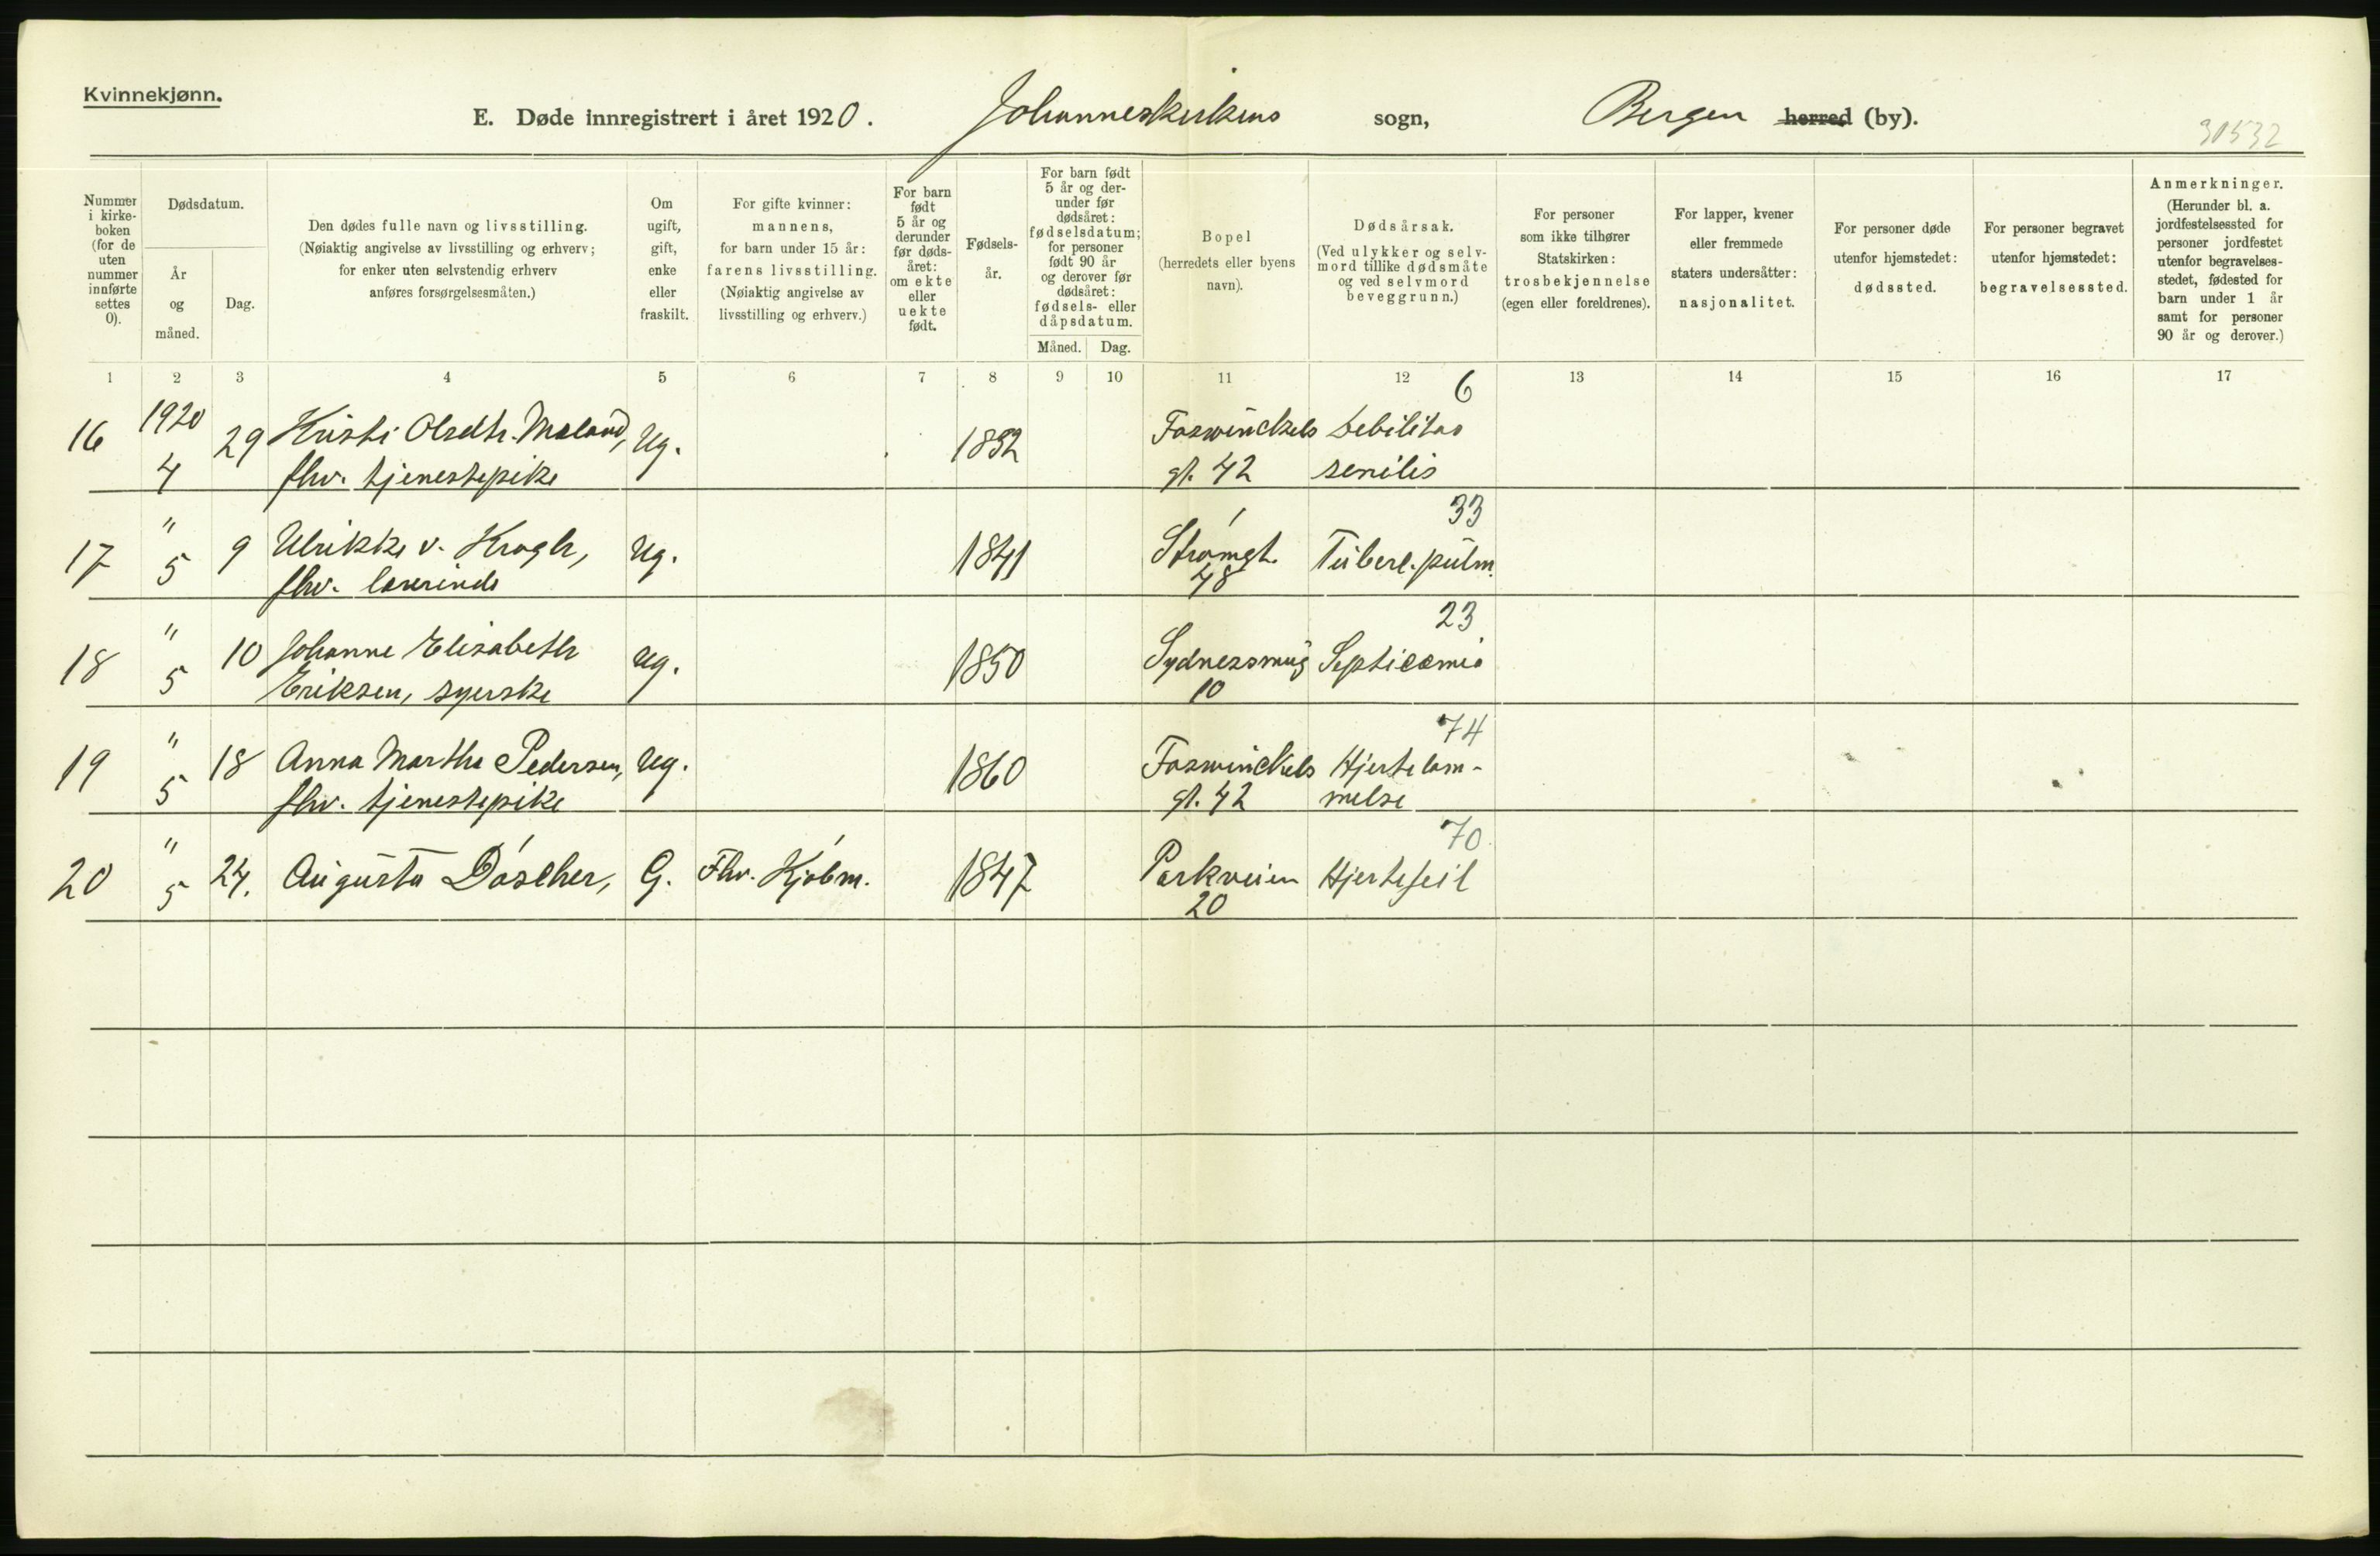 Kvinnekjønn.
E. Døde innregistrert i året 1920. Johanneskirkens sogn, Bergen herred (by).
30532
Nummer i kirke-boken (for de uten nummer innførte settes 0).
Dødsdatum.
År og måned.
Dag.
Den dødes fulle navn og livsstilling.
(Nøiaktig angivelse av livsstilling og erhverv;
for enker uten selvstendig erhverv
anføres forsørgelsesmåten.)
Om ugift, gift, enke eller fraskilt.
For gifte kvinner:
mannens,
for barn under 15 år:
farens livsstilling.
(Nøiaktig angivelse av
livsstilling og erhverv.)
For barn født 5 år og derunder før døds-året: om ekte eller uekte født.
Fødsels-år.
For barn født
5 år og der-
under før
dødsåret:
fødselsdatum;
for personer
født 90 år
og derover før
dødsåret:
fødsels- eller
dåpsdatum.
Måned. Dag.
Bopel
(herredets eller byens
navn).
Dødsårsak.
(Ved ulykker og selv-
mord tillike dødsmåte
og ved selvmord
beveggrunn.)
For personer
som ikke tilhører
Statskirken:
trosbekjennelse
(egen eller foreldrenes).
For lapper, kvener
eller fremmede
staters undersåtter:
nasjonalitet.
For personer døde
utenfor hjemstedet:
dødssted.
For personer begravet
utenfor hjemstedet:
begravelsessted.
Anmerkninger.
(Herunder bl. a.
jordfestelsessted for
personer jordfestet
utenfor begravelses-
stedet, fødested for
barn under 1 år
samt for personer
90 år og derover.)
1 2 3 4 5 6 7 8 9 10 11 12 13 14 15 16 17
6
16 1920 29 Kristi Olsdtr. Maland, Ug. 1832 Foswinckels Debilitas
4 fhv. tjenestepike gt. 42 senilis
33
17 " 9 Ulrikke v. Krogh, Ug. 1841 Strømgt. Tuberc. pulm.
5 fhv. lærerinde 48
23
18 " 10 Johanne Elisabeth Ug. 1850 Sydnessmug Septicæmia
5 Eriksen, syerske 10
74
19 " 18 Anna Martha Pedersen, Ug. 1860 Foswinckels Hjertelam-
5 fhv. tjenestepike gt. 42 melse
70
20 " 24. Augusta Döscher, G. Fhv. Kjøbm. 1847 Parkveien Hjertefeil
5 20